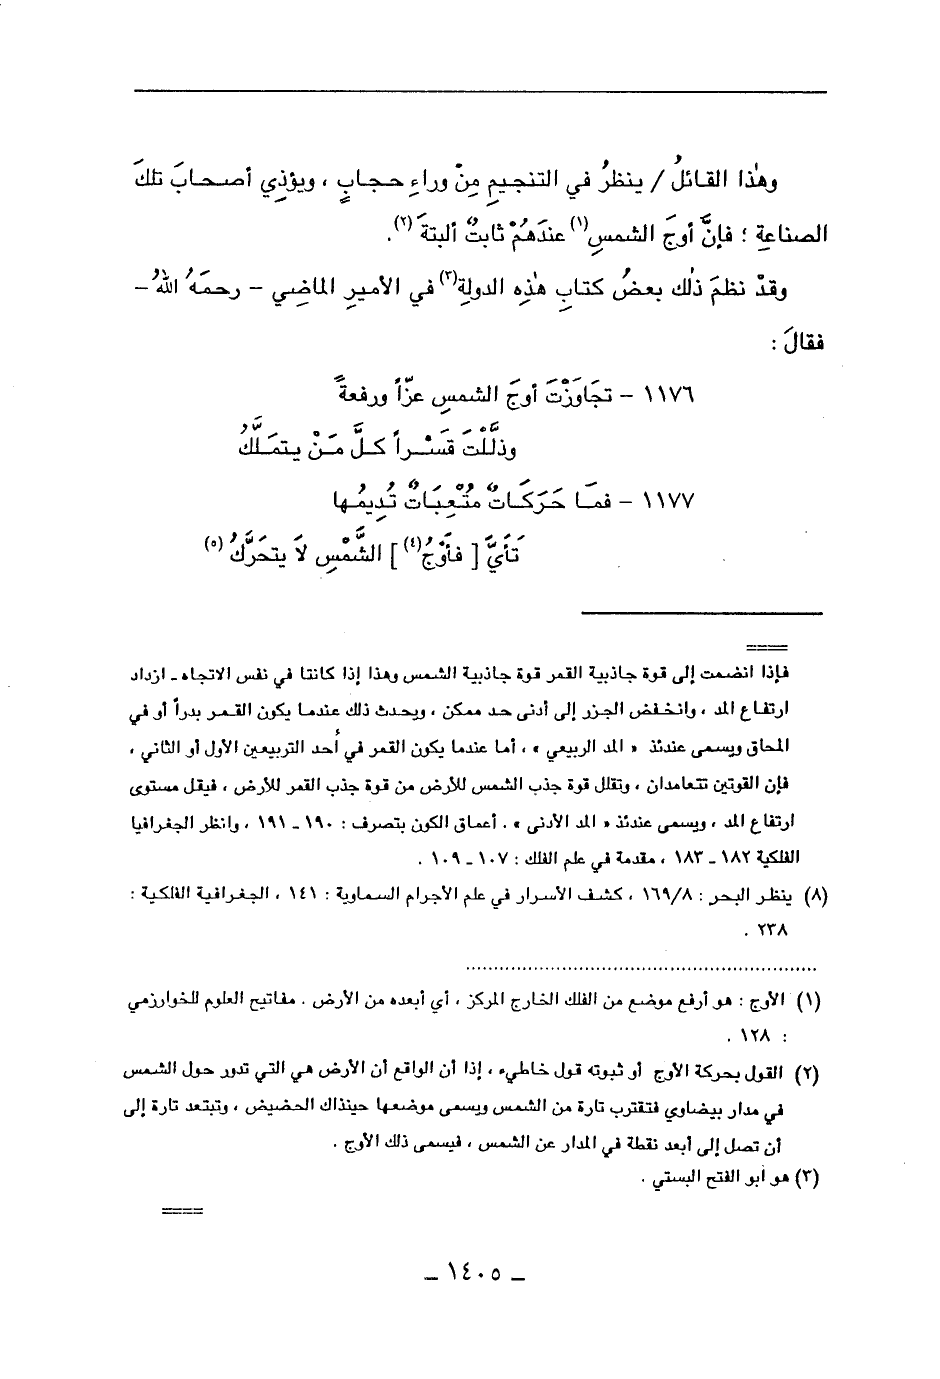 وهٰذا القائلُ / ينظرُ في التنجيمِ مِنْ وراءِ حجابٍ ، ويؤذِي أصحابَ تلكَ
الصناعةِ ؛ فإنَّ أوجَ الشمسِ(١) عندَهُمْ ثابتٌ ألبتةَ (٢).
وقدْ نظمَ ذٰلك بعضُ كتابِ هٰذِه الدولةِ(٣) في الأميرِ الماضِي – رحمَهُ اللهُ –
فقالَ :
١١٧٦ – تجَاوَزْتَ أوجَ الشمسِ عزّاً ورفعةً
وذلَّلْتَ قَسْراً كلَّ مَنْ يتملَّكُ
١١٧٧ – فمَا حَرَكَاتٌ مُتْعِبَاتٌ تُدِيمُها
تَأَيَّ [ فأَوْجُ(٤) ] الشَّمْسِ لاَ يتحَرَّكُ (٥)
====
فإذا انضمت إلى قوة جاذبية القمر قوة جاذبية الشمس وهذا إذا كانتا في نفس الاتجاه ـ ازداد
ارتفاع المد ، وانخفض الجزر إلى أدنى حد ممكن ، ويحدث ذلك عندما يكون القمر بدراً أو في
المحاق ويسمى عندئذ « المد الربيعي » ، أما عندما يكون القمر في أحد التربيعين الأول أو الثاني ،
فإن القوتين تتعامدان ، وتقلل قوة جذب الشمس للأرض من قوة جذب القمر للأرض ، فيقل مستوى
ارتفاع المد ، ويسمى عندئذ « المد الأدنى » . أعماق الكون بتصرف : ١٩٠ ـ ١٩١ ، وانظر الجغرافيا
الفلكية ١٨٢ ـ ١٨٣ ، مقدمة في علم الفلك : ١٠٧ ـ ١٠٩ .
(٨) ينظر البحر : ١٦٩/٨ ، كشف الأسرار في علم الأجرام السماوية : ١٤١ ، الجغرافية الفلكية :
٢٣٨ .
................................................................
(١) الأوج : هو أرفع موضع من الفلك الخارج المركز ، أي أبعده من الأرض . مفاتيح العلوم للخوارزمي
: ١٢٨ .
(٢) القول بحركة الأوج أو ثبوته قول خاطيء ، إذا أن الواقع أن الأرض هي التي تدور حول الشمس
في مدار بيضاوي فتقترب تارة من الشمس ويسمى موضعها حينذاك الحضيض ، وتبتعد تارة إلى
أن تصل إلى أبعد نقطة في المدار عن الشمس ، فيسمى ذلك الأوج .
(٣) هو أبو الفتح البستي .
====
ـ ١٤٠٥ ـ